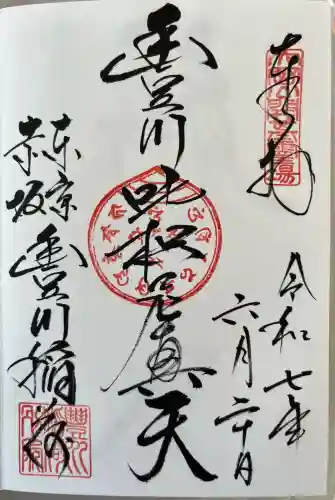 奉拝
令和七年
六月二十日
豊川吒枳尼真天
東京
赤坂
豊川稲荷